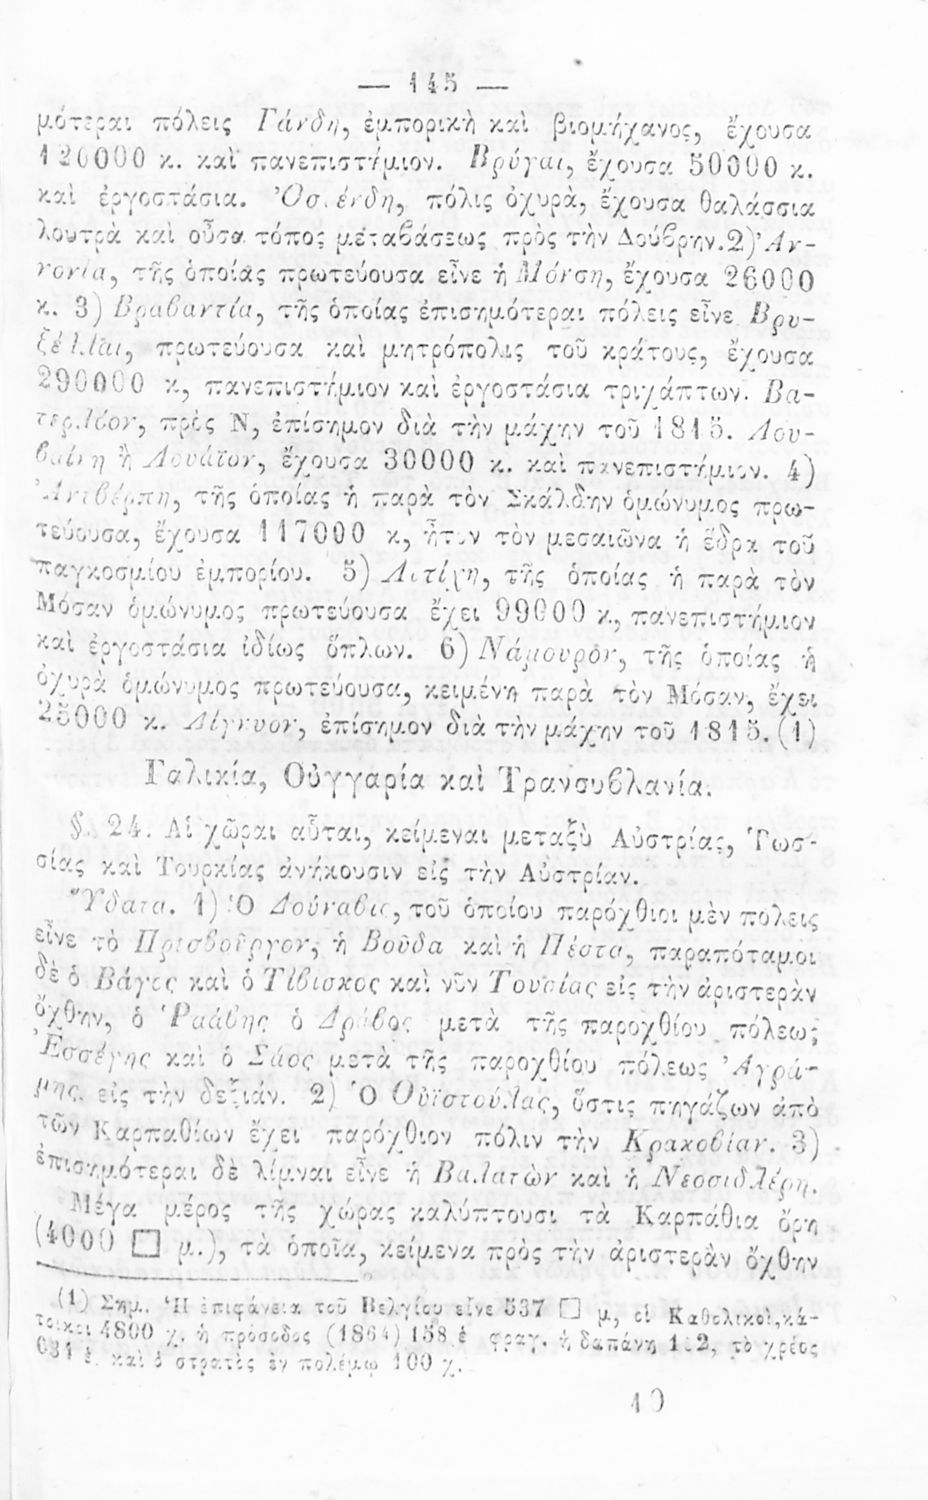 — 145 —
μότεραι πόλεις Γάνδη, ἐμπορικὴ καὶ βιομήχανος, ἔχουσα
120000 κ. καὶ πανεπιστήμιον. Βρύγαι, ἔχουσα 50000 κ.
καὶ ἐργοστάσια. Ὀστένδη, πόλις ὀχυρὰ, ἔχουσα θαλάσσια
λουτρὰ καὶ οὖσα τόπος μεταβάσεως πρὸς τὴν Δούβρην. 2) Ἀν-
νονία, τῆς ὁποίας πρωτεύουσα εἶνε ἡ Μόνση, ἔχουσα 26000
κ. 3) Βραβαντία, τῆς ὁποίας ἐπισημότεραι πόλεις εἶνε Βρυ-
ξέλλαι, πρωτεύουσα καὶ μητρόπολις τοῦ κράτους, ἔχουσα
290000 κ, πανεπιστήμιον καὶ ἐργοστάσια τριχάπτων. Βα-
τερλόον, πρὸς Ν, ἐπίσημον διὰ τὴν μάχην τοῦ 1815. Λου-
βαίνη ἢ Λουάϊον, ἔχουσα 30000 κ. καὶ πανεπιστήμιον. 4)
Ἀντβέρπη, τῆς ὁποίας ἡ παρὰ τὸν Σκάλδην ὁμώνυμος πρω-
τεύουσα, ἔχουσα 117000 κ, ἦτον τὸν μεσαιῶνα ἡ ἕδρα τοῦ
παγκοσμίου ἐμπορίου. 5) Λιτίχη, τῆς ὁποίας ἡ παρὰ τὸν
Μόσαν ὁμώνυμος πρωτεύουσα ἔχει 99000 κ, πανεπιστήμιον
καὶ ἐργοστάσια ἰδίως ὅπλων. 6) Νάμουρον, τῆς ὁποίας ἡ
ὀχυρὰ ὁμώνυμος πρωτεύουσα, κειμένη παρὰ τὸν Μόσαν, ἔχει
25000 κ. Λίγνυον, ἐπίσημον διὰ τὴν μάχην τοῦ 1815. (1)
Γαλικία, Οὑγγαρία καὶ Τρανσυβλανία.
§. 24. Αἱ χῶραι αὗται, κείμεναι μεταξὺ Αὐστρίας, Ῥωσ-
σίας καὶ Τουρκίας ἀνήκουσιν εἰς τὴν Αὐστρίαν.
Ὕδατα. 1) Ὁ Δούναβις, τοῦ ὁποίου παρόχθιοι μὲν πόλεις
εἶνε τὸ Πρισβοῦργον, ἡ Βούδα καὶ ἡ Πέστα, παραπόταμοι
δὲ ὁ Βάγος καὶ ὁ Τίβισκος καὶ νῦν Τουσίας εἰς τὴν ἀριστερὰν
ὄχθην, ὁ Ῥαάβης ὁ Δράβος μετὰ τῆς παροχθίου πόλεως
Ἐσσέγης καὶ ὁ Σάος μετὰ τῆς παροχθίου πόλεως Ἀγρά-
μης, εἰς τὴν δεξιάν. 2) Ὁ Οὐϊστούλας, ὅστις πηγάζων ἀπὸ
τῶν Καρπαθίων ἔχει παρόχθιον πόλιν τὴν Κρακοβίαν. 3)
ἐπισημότεραι δὲ λίμναι εἶνε ἡ Βαλατὼν καὶ ἡ Νεοσιδλέρη.
Μέγα μέρος τῆς χώρας καλύπτουσι τὰ Καρπάθια ὄρη
(4000 □ μ.), τὰ ὁποῖα, κείμενα πρὸς τὴν ἀριστερὰν ὄχθην
(1) Σημ. Ἡ ἐπιφάνεια τοῦ Βελγίου εἶνε 537 □ μ, οἱ Καθολικοὶ, κά-
τοικοι 4800 χ. ἡ πρόσοδος (1864) 158 ἑ φραγ. ἡ δαπάνη τὸ χρέος
ἑ. καὶ ὁ στρατὸς ἐν πολέμῳ 100 χ.
10